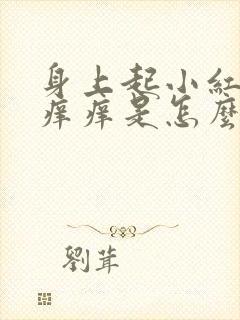 身上起小紅
痒痒是怎麼
劉茸